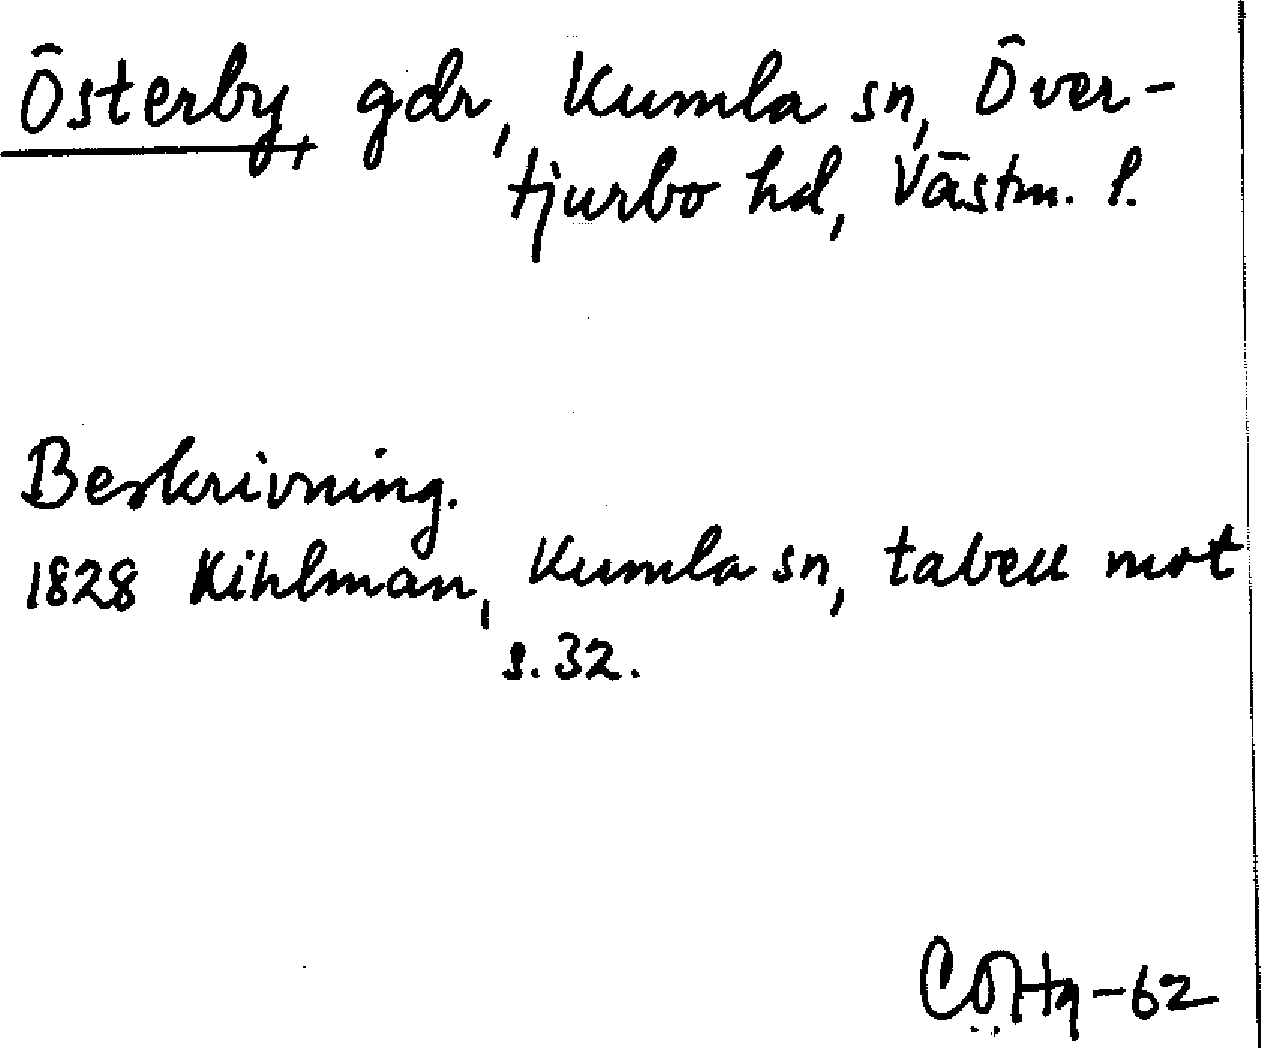 Österby, gdr, Kumla sn, Över-
tjurbo hd, Västm. l.
Beskrivning.
1828 Kihlman, Kumla sn, tabell mot
s. 32.
-62